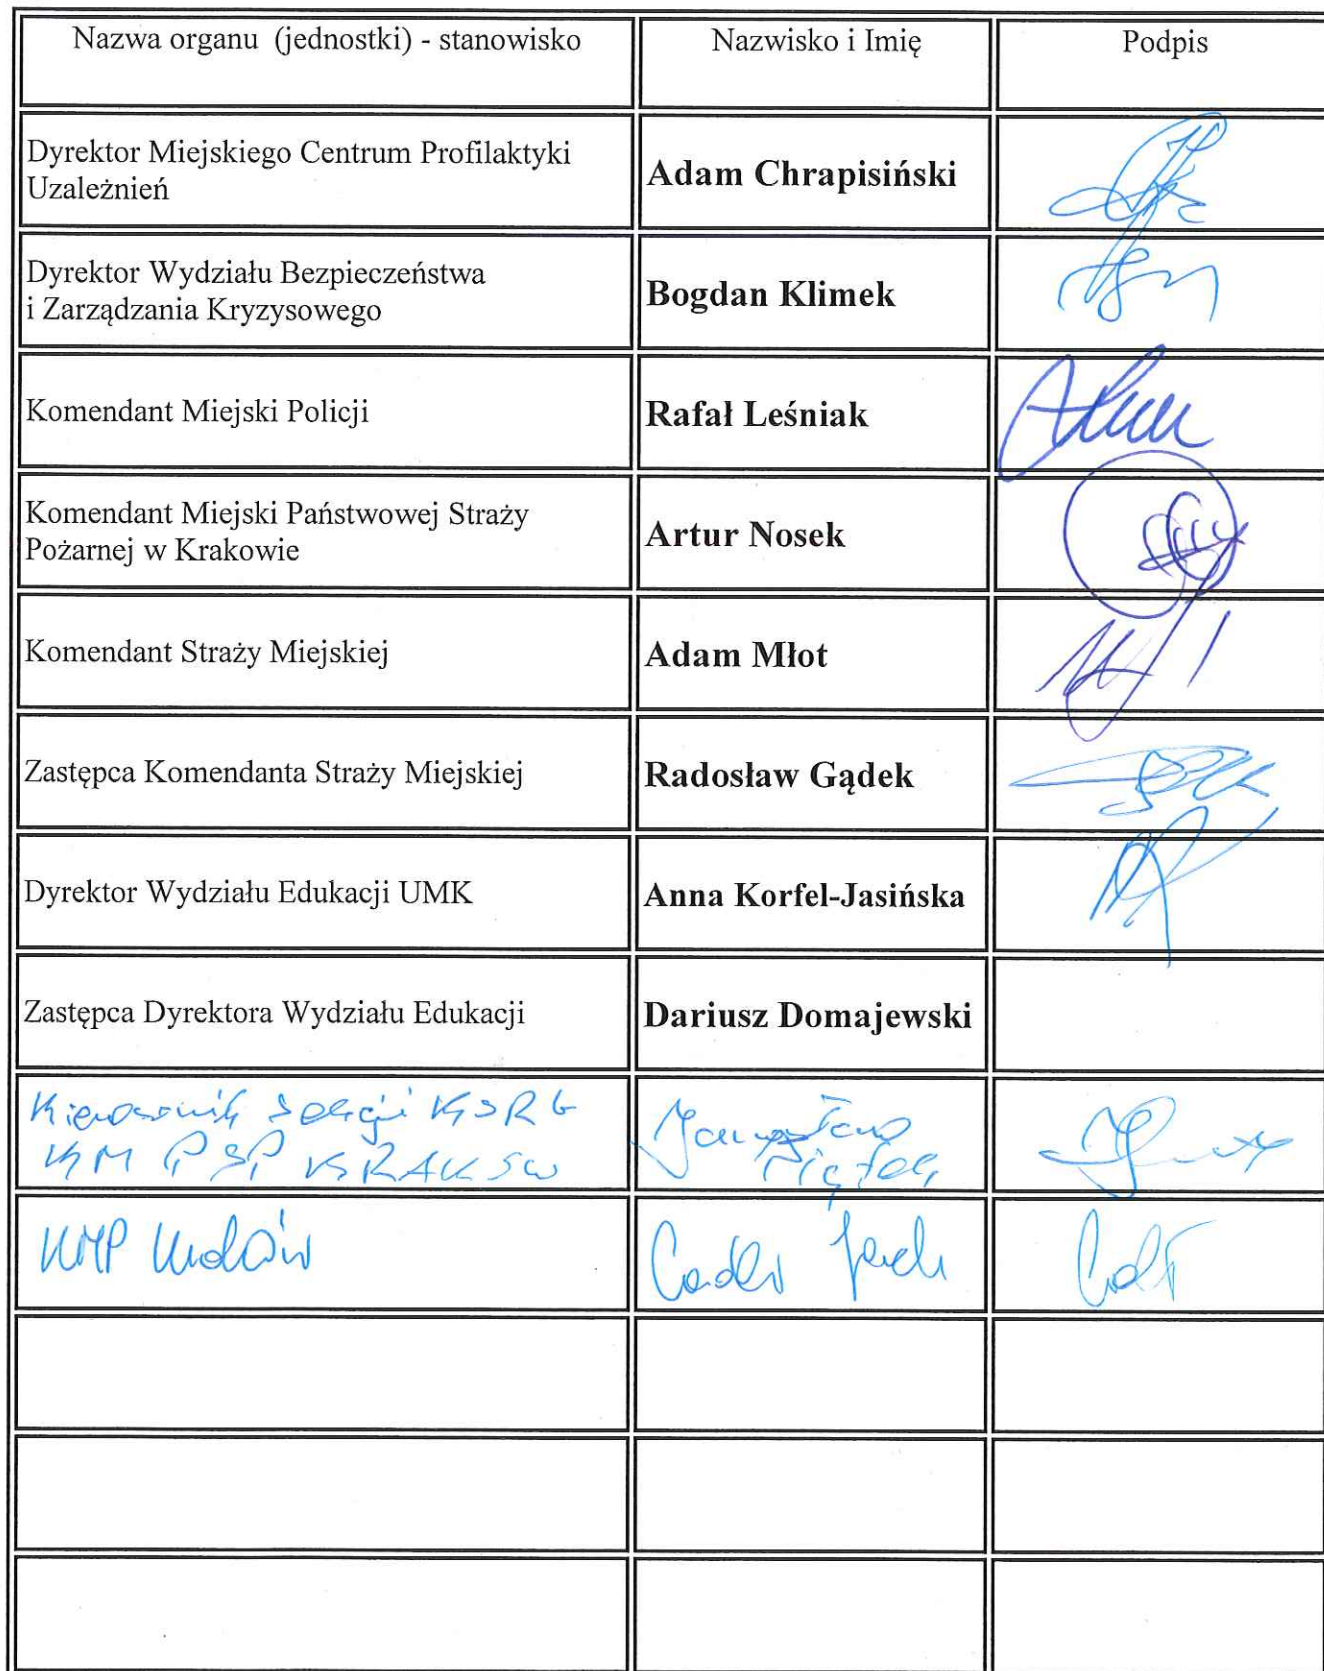 Nazwa organu (jednostki) - stanowisko Nazwisko i Imię Podpis
Dyrektor Miejskiego Centrum Profilaktyki
Uzależnień
Adam Chrapisiński
Dyrektor Wydziału Bezpieczeństwa
i Zarządzania Kryzysowego
Bogdan Klimek
Komendant Miejski Policji Rafał Leśniak
Komendant Miejski Państwowej Straży
Pożarnej w Krakowie
Artur Nosek
Komendant Straży Miejskiej Adam Młot
Zastępca Komendanta Straży Miejskiej Radosław Gądek
Dyrektor Wydziału Edukacji UMK Anna Korfel-Jasińska
Zastępca Dyrektora Wydziału Edukacji Dariusz Domajewski
Kierownik Sekcji KSRG
KM PSP KRAKÓW
Piątek
KMP Kraków